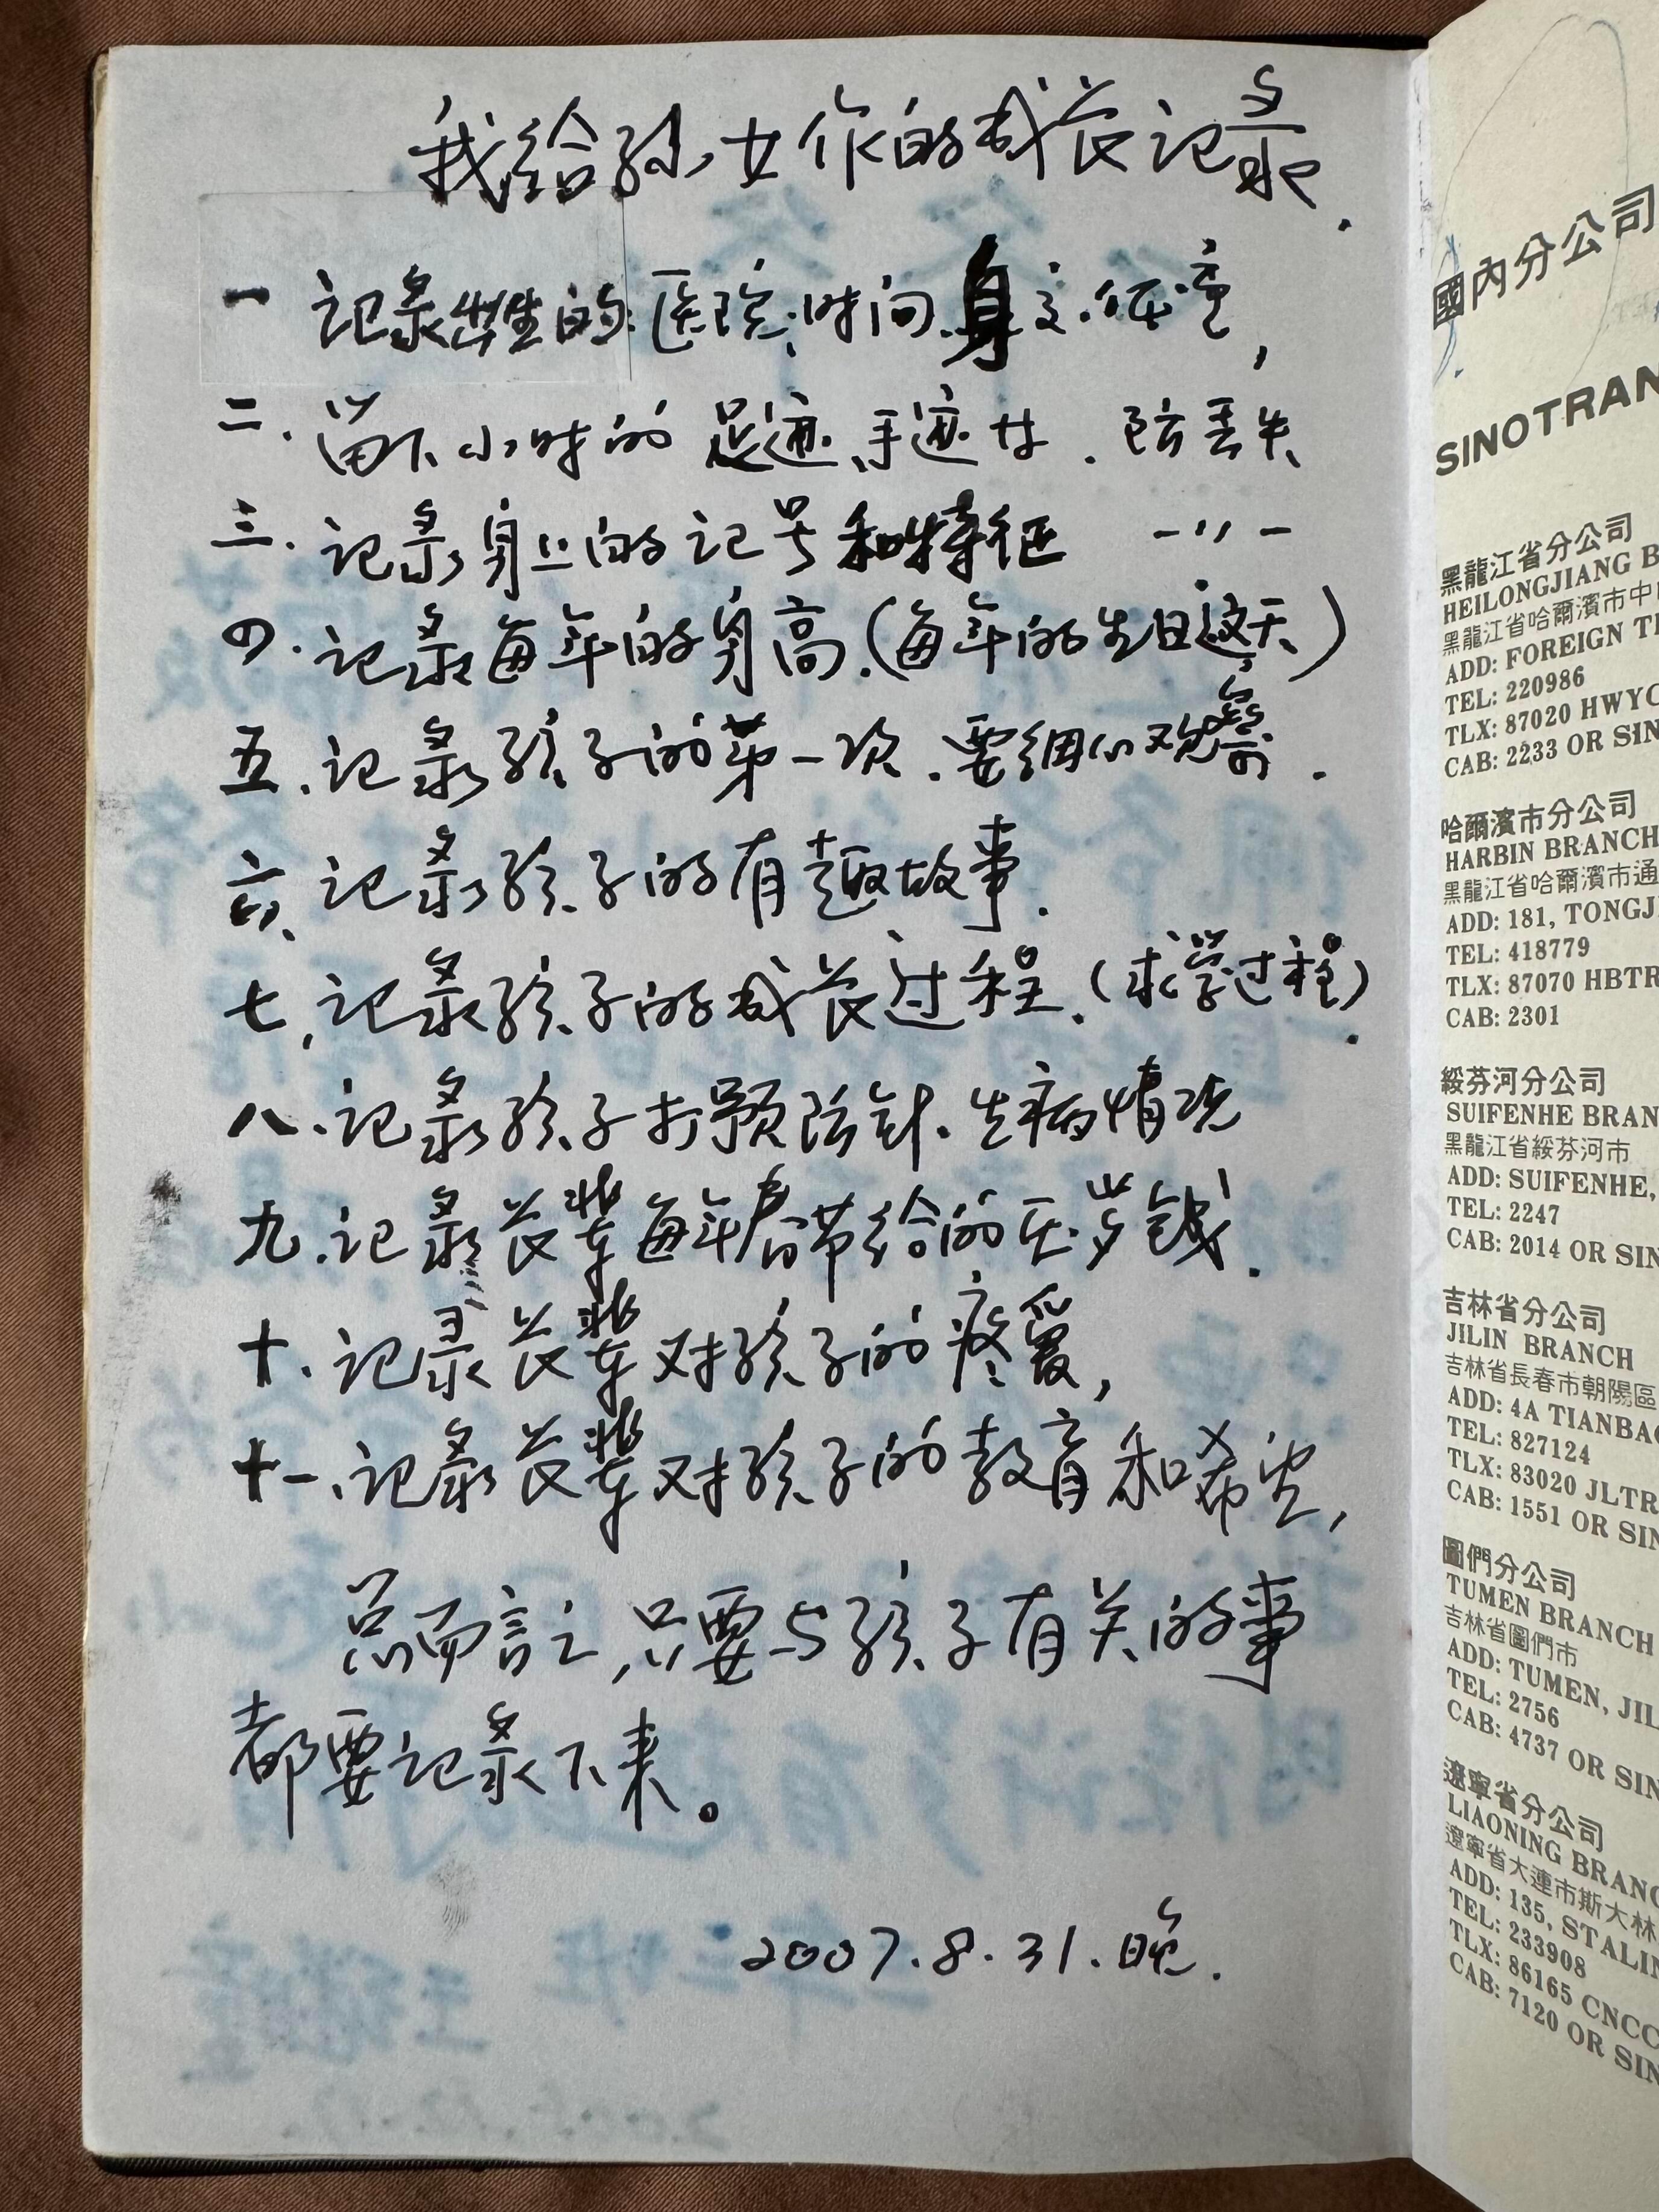 我给孙女作的成长记录.
一 记录出生的医院.时间.身文.体重,
二.留下小时的足迹、手迹廿.防丢失
三.记录身上的记号和特征 一〃一
四.记录每年的身高.(每年的生日这天)
五.记录孩子的第一次.要细心观察.
六、记录孩子的有趣故事.
七,记录孩子的成长过程.(求学过程).
八、记录孩子打预防针.生病情况
九.记录长辈每年春节给的压岁钱.
十、记录长辈对孩子的疼爱,
十一、记录长辈对孩子的教育和希望,
总而言之,只要与孩子有关的事
都要记录下来。
2007.8.31.晚.
國內分公司
SINOTRAN
黑龍江省分公司
HEILONGJIANG B
黑龍江省哈爾濱市中
ADD: FOREIGN T
TEL: 220986
TLX: 87020 HWYC
CAB: 2233 OR SIN
哈爾濱市分公司
HARBIN BRANCH
黑龍江省哈爾濱市通
ADD: 181, TONGJ
TEL: 418779
TLX: 87070 HBTR
CAB: 2301
綏芬河分公司
SUIFENHE BRAN
黑龍江省綏芬河市
ADD: SUIFENHE,
TEL: 2247
CAB: 2014 OR SIN
吉林省分公司
JILIN BRANCH
吉林省長春市朝陽區
ADD: 4A TIANBAO
TEL: 827124
TLX: 83020 JLTR
CAB: 1551 OR SIN
圖們分公司
TUMEN BRANCH
吉林省圖們市
ADD: TUMEN, JIL
TEL: 2756
CAB: 4737 OR SIN
遼寧省分公司
LIAONING BRANC
遼寧省大連市斯大林
ADD: 135, STALIN
TEL: 233908
TLX: 86165 CNCC
CAB: 7120 OR SIN